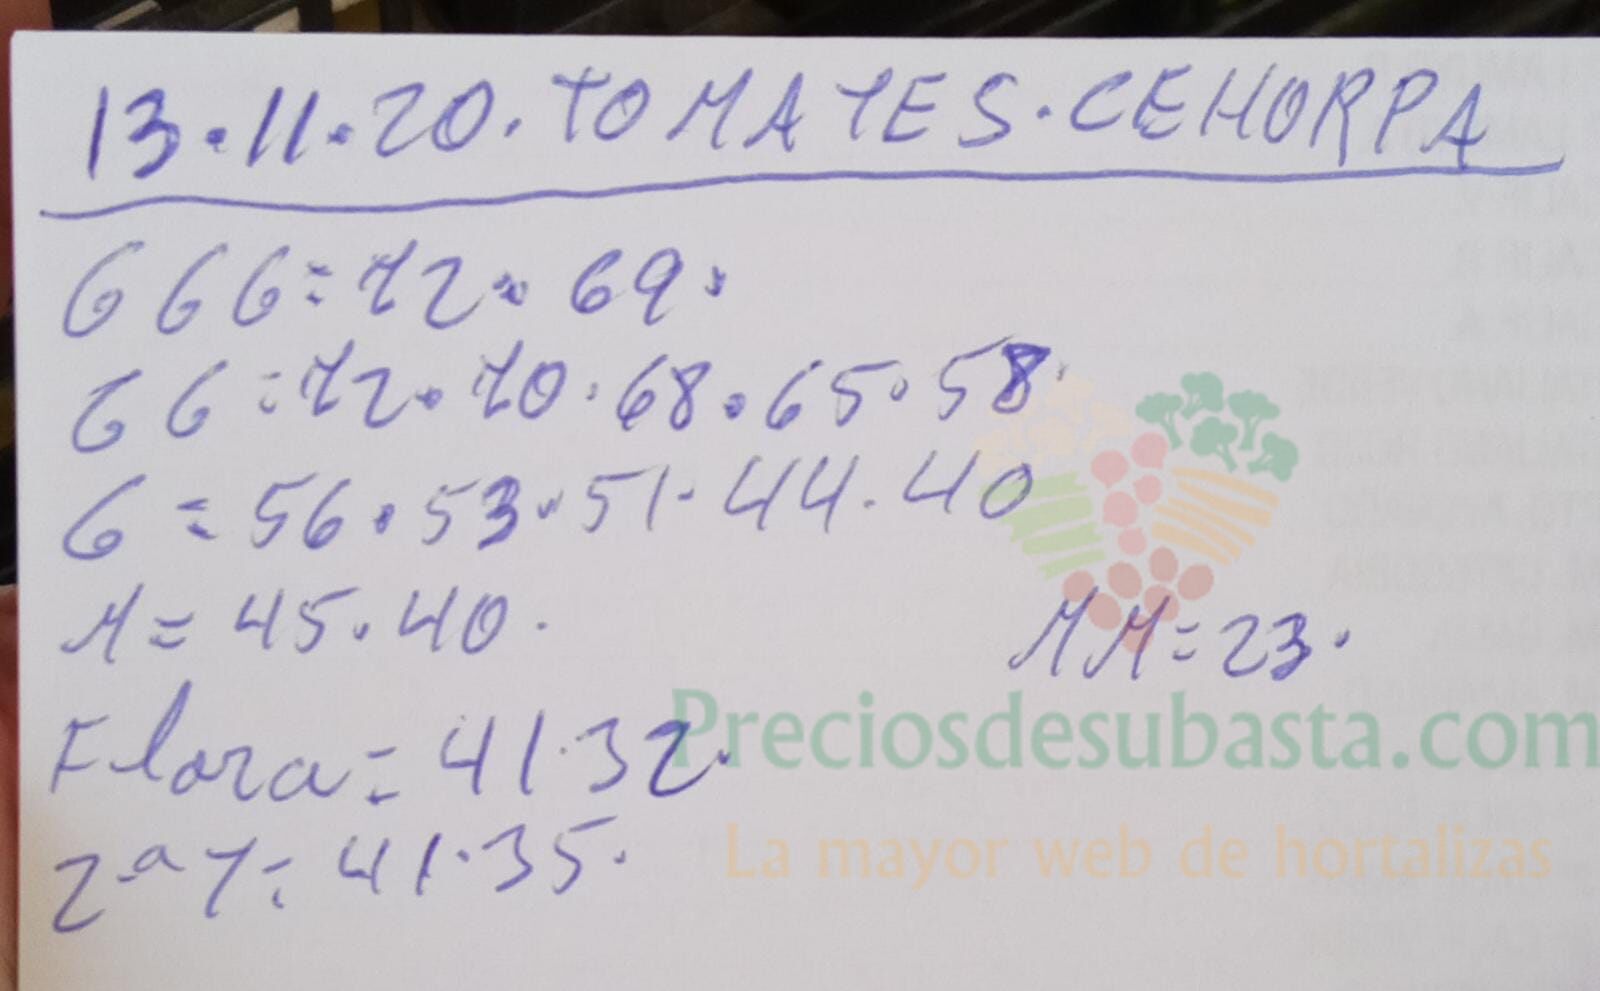 13.11.20. TOMATES. CEHORPA
GGG = 72. 69.
GG = 72. 70. 68. 65. 58.
G = 56. 53. 51. 44. 40
M = 45. 40.
MM = 23.
Flora = 41. 32.
Preciosdesubasta.com
2ª 7 = 41. 35.
La mayor web de hortalizas